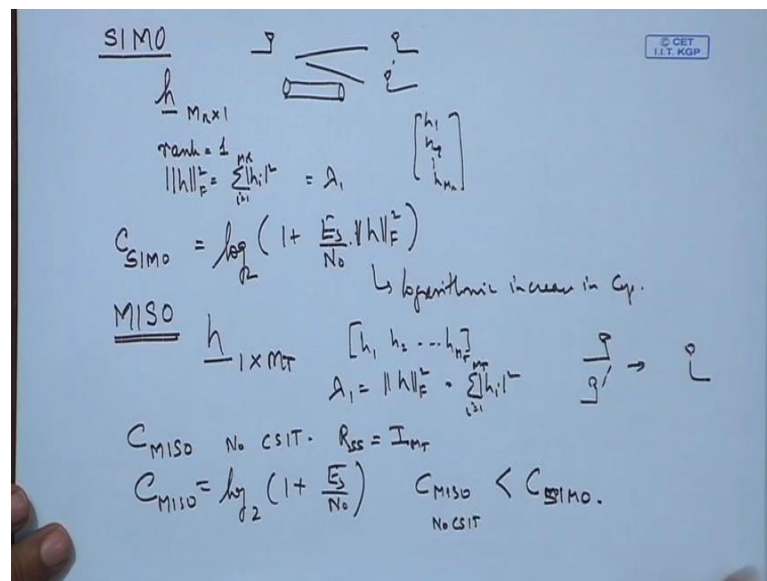 SIMO
© CET
I.I.T. KGP
h M_R×1
rank = 1
||h||²_F = Σ_{i=1}^{M_R} |h_i|² = λ₁
[h₁ h₂ ⋮ h_{M_R}]
C_SIMO = log₂ (1 + E_s/N₀ . ||h||²_F)
↳ logarithmic increase in Cap.
MISO h 1×M_T [h₁ h₂ ... h_{M_T}]
λ₁ = ||h||²_F = Σ_{i=1}^{M_T} |h_i|²
C_MISO No CSIT. R_ss = I_{M_T}
C_MISO = log₂ (1 + E_s/N₀) C_MISO < C_SIMO.
No CSIT